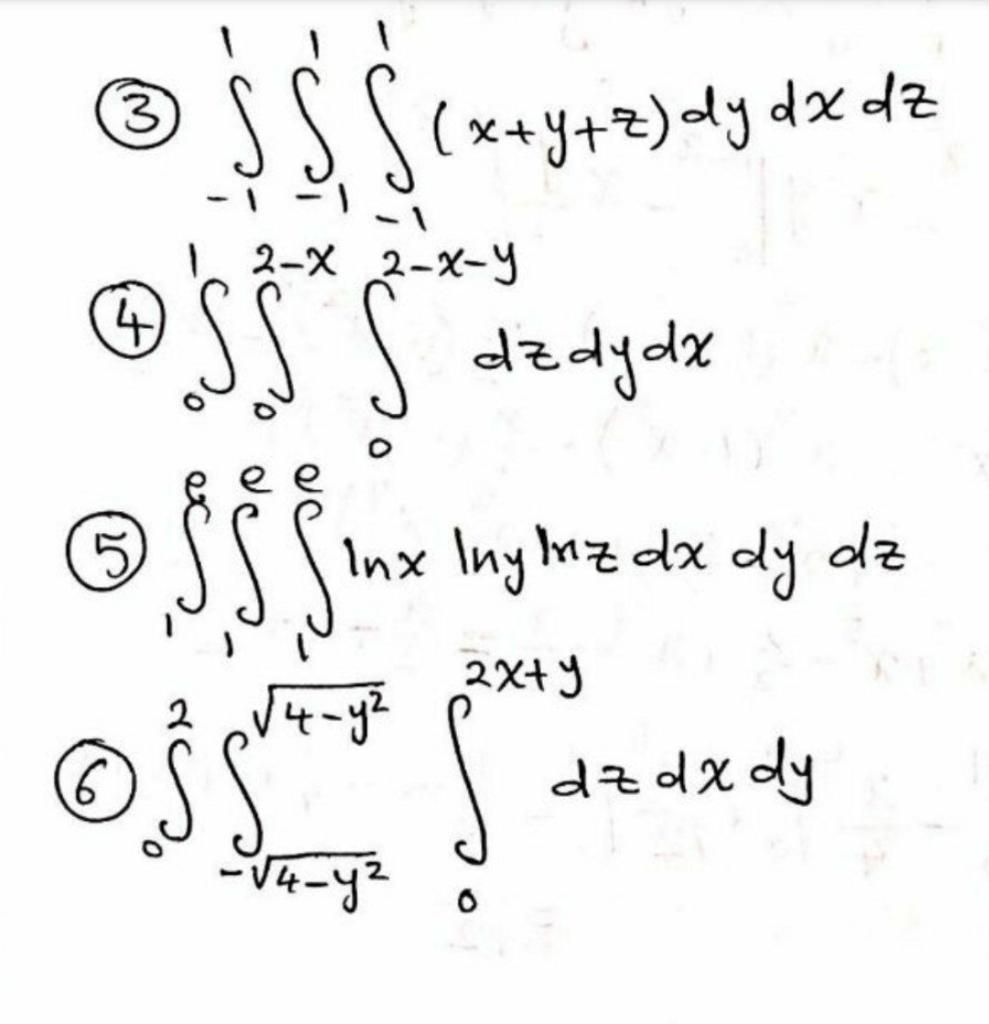 ③ ∫_{-1}^{1} ∫_{-1}^{1} ∫_{-1}^{1} (x+y+z) dy dx dz
④ ∫_{0}^{1} ∫_{0}^{2-x} ∫_{0}^{2-x-y} dz dy dx
⑤ ∫_{1}^{e} ∫_{1}^{e} ∫_{1}^{e} lnx lny lnz dx dy dz
⑥ ∫_{0}^{2} ∫_{-√(4-y²)}^{√(4-y²)} ∫_{0}^{2x+y} dz dx dy